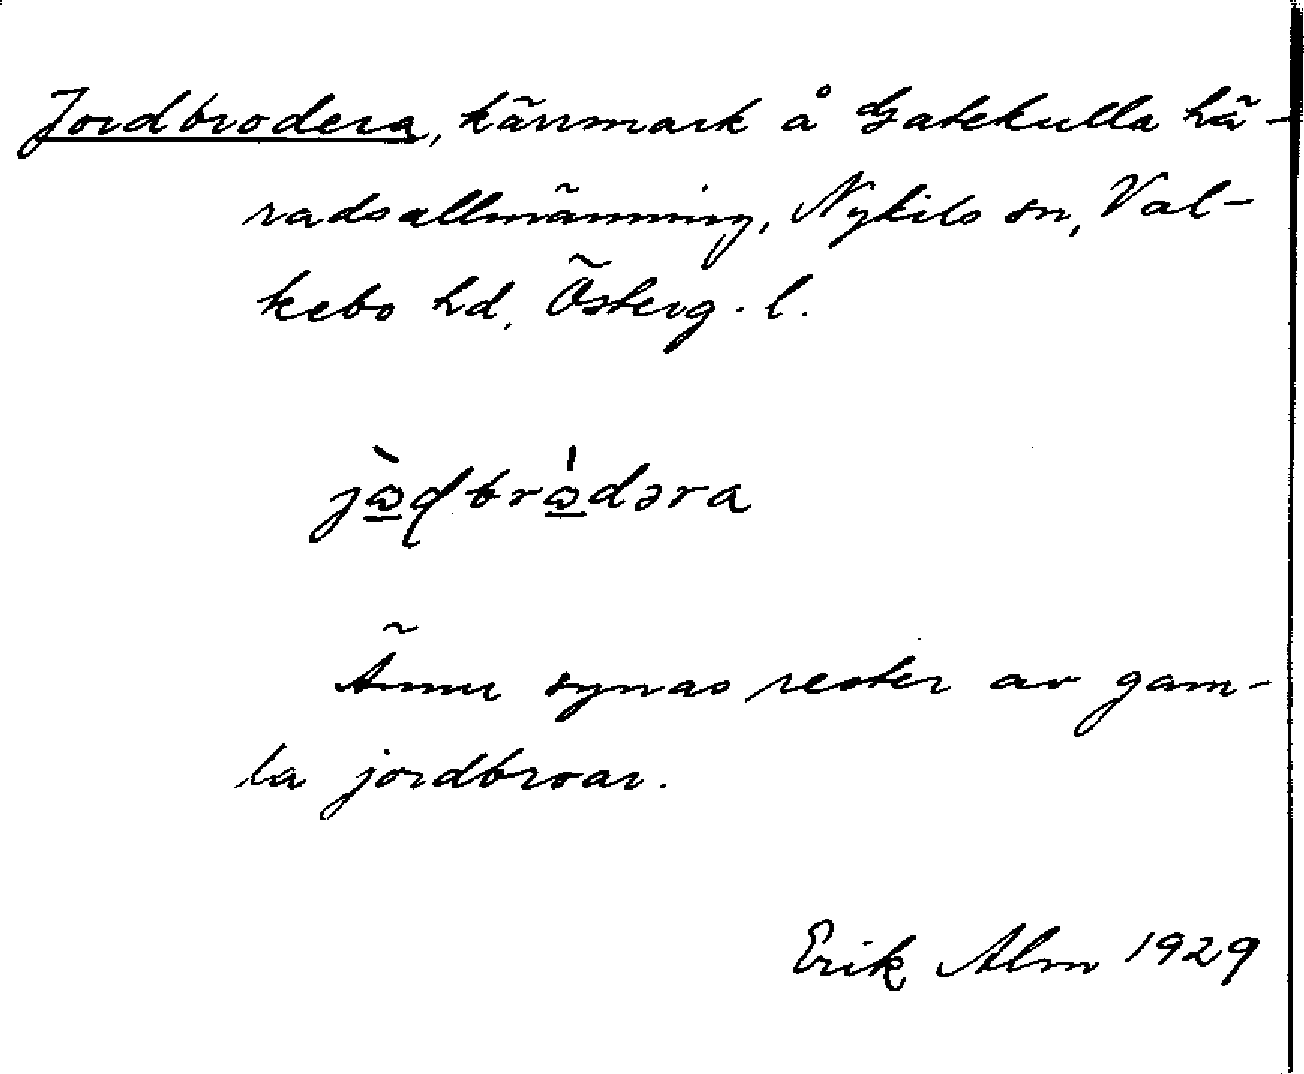 Jordbrodera, kärrmark å Gatekulla hä-
radsallmänning, Nykils sn, Val-
kebo hd, Österg. l.
jὼ̲ɖbrώ̲dəra
Ännu synas rester av gam-
la jordbroar.
Erik Alm 1929